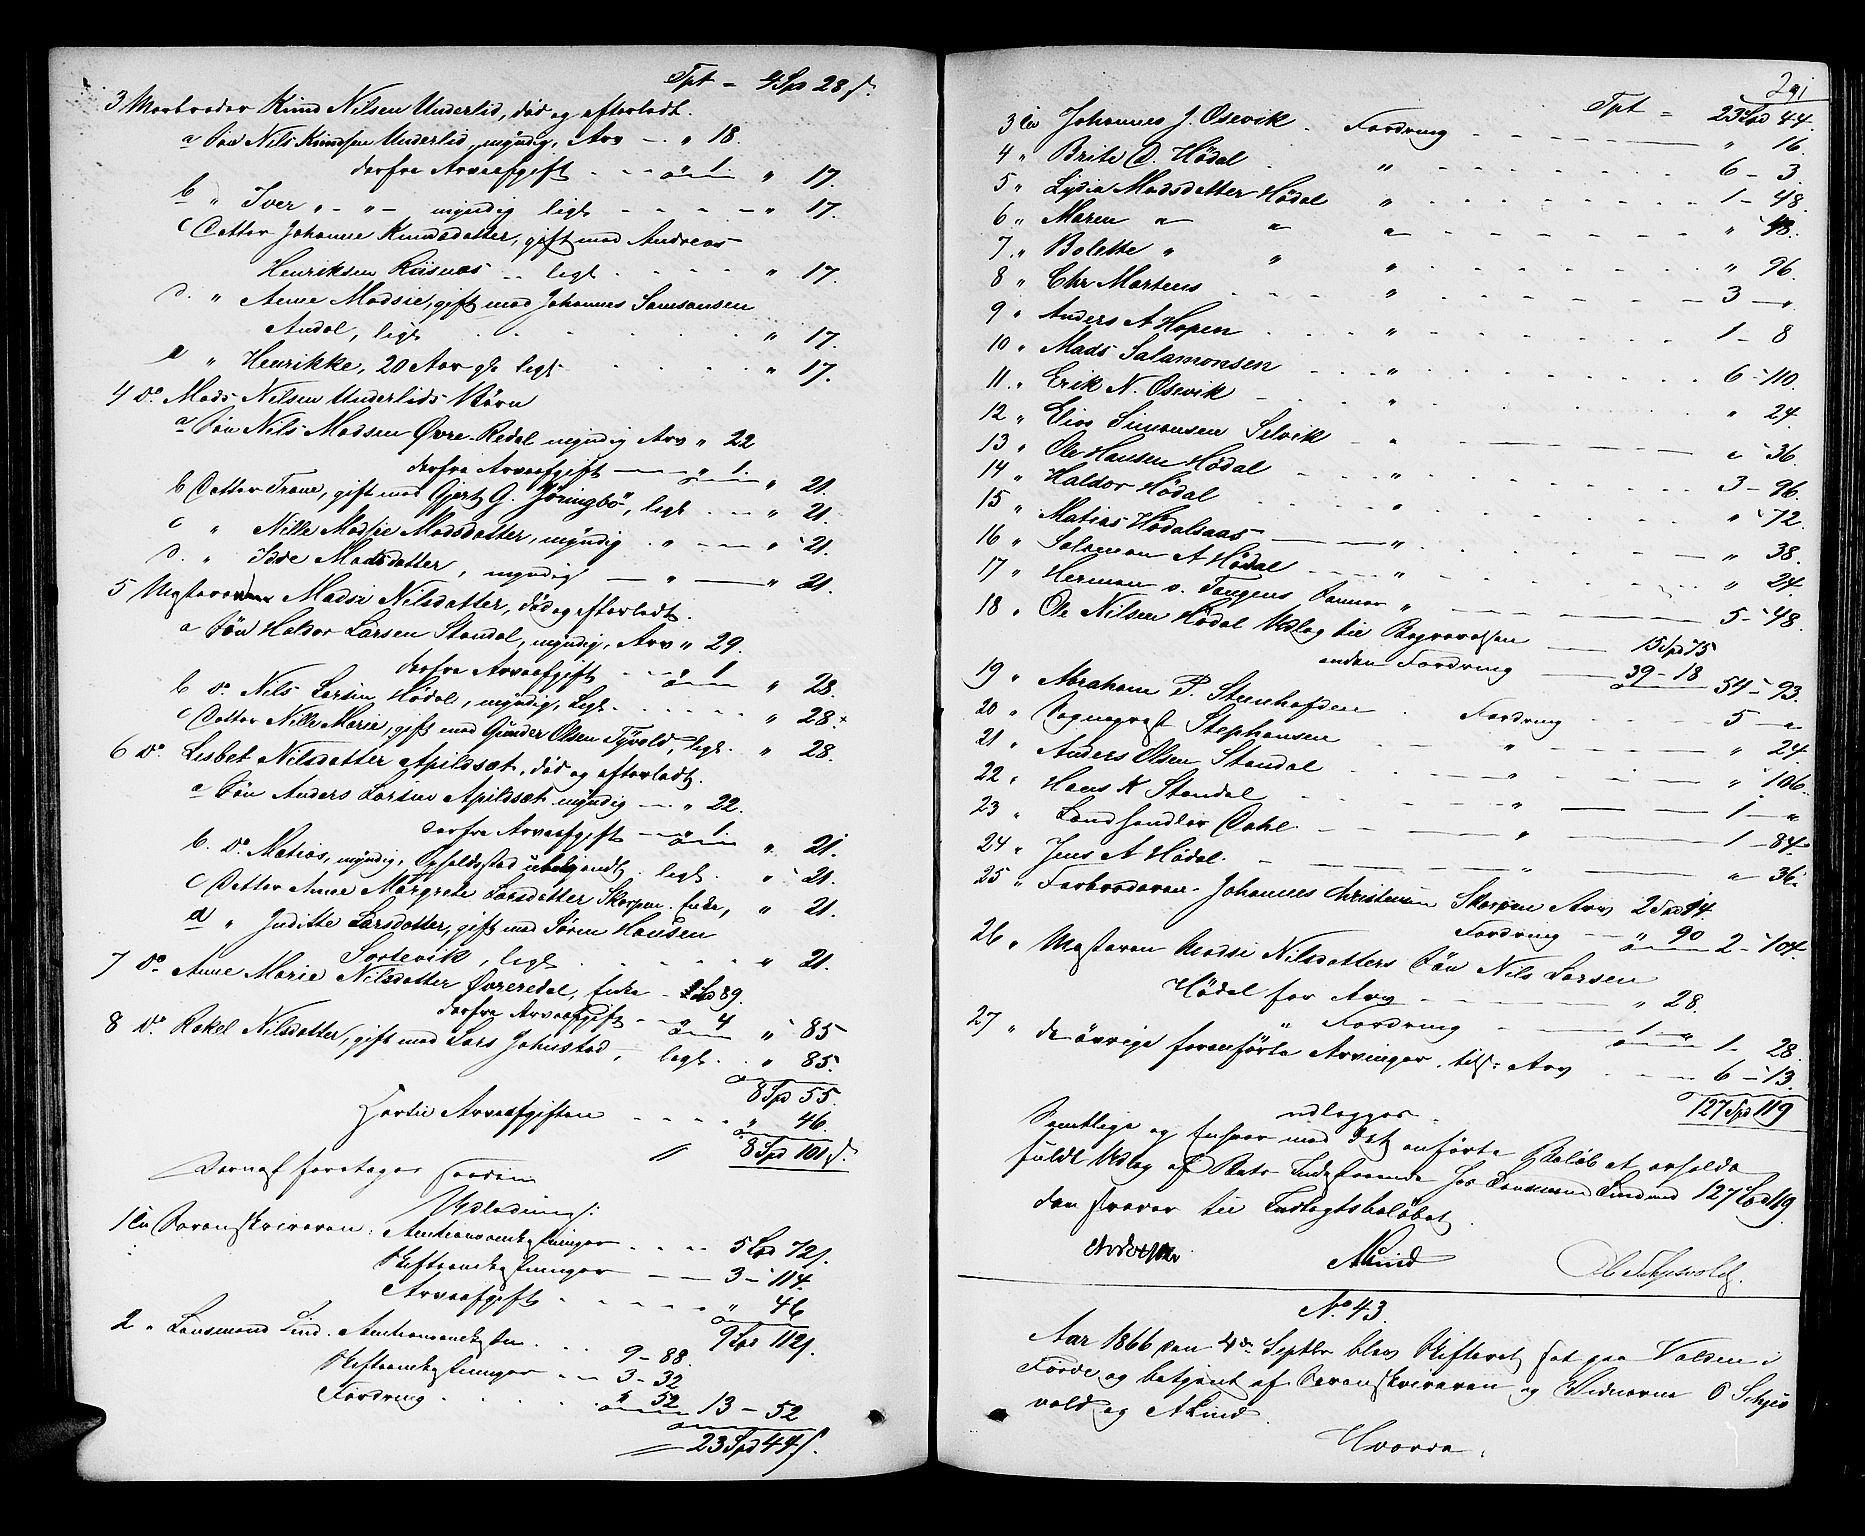 Tpt = 4 Spd 28 s.
3 Morbroder Knud Nilsen Underlid, död og efterladt.
a Sön Nils Knudsen Underlid, myndig, Arv — " 18.
derfra Arveafgift - - " 1. " 17.
b " Iver " - " - myndig ligt - - - - " 17.
c Datter Johanne Knudsdatter, gift med Andreas
Henriksen Riisnæs - ligt - - - " 17.
d. " Anne Madsie, gift med Johannes Samsonsen
Andal, ligt - - - - " 17.
e " Henrikke, 20 Aar gl. ligt - - - " 17.
4 do. Mads Nilsen Underlids Börn
a Sön Nils Madsen Övre-Redal myndig Arv " 22
derfra Arveafgift — " 1. " 21.
b Datter Trane, gift med Gjert G. Jöringbö, ligt - - " 21.
c " Nille Madsie Madsdatter, myndig - " - - " 21.
d. " Idse Madsdatter, myndig — " — " 21.
5 Mosteren Madsi Nilsdatter, död og efterladt.
a Sön Haldor Larsen Standal, myndig, Arv " 29.
derfra Arveafgift - - " 1 " 28.
b do. Nils Larsen Hödal, myndig, Ligt - - - " 28.+
c Datter Nille Marie, gift med Gunder Olsen Tyvold, ligt. " 28.
6 do. Lisbet Nilsdatter Apildsæt, död og efterladt.
a Sön Anders Larsen Apildsæt myndig — " 22.
derfra Arveafgift — " 1. " 21.
b. do. Matias, myndig, Opholdssted ubekjendt. ligt. " 21.
c Datter Anne Margrete Larsdatter Skorpen. Enke, " 21.
d " Juditte Larsdatter, gift med Sören Hansen
Sortevik, ligt - - - - " 21.
7 do. Anne Marie Nilsdatter Övreredal, Enke - Spd 89.
derfra Arveafgift - - " 4 " 85
8 do. Rakel Nilsdatter, gift med Lars Jonstad, ligt. " 85.
8 Spd 55.
Hertil Arveafgiften - - - - " 46.
8 Spd 101 s.
Dernæst foretages saadan
Udlodning:
1 til Sorenskriveren. Auctionsomkostninger - - - 5 Spd 72 s.
Skifteomkostninger — 3 - 114.
Arveafgift - - - - " 46
9 Spd 112 s.
2 " Lensmand Lind. Auctionsomkosten - 9 - 88.
Skifteomkostninger - - 3 - 32
Fordring - - - - " 52 13 - 52
23 Spd 44 s.
291
Tpt = 23 Spd 44.
3 til Johannes J. Osevik. Fordring - - - " 16.
4 " Brite D. Hödal - " - - - 6 - 3.
5 " Lydia Madsdatter Hödal " - - - 1 - 48.
6 " Maren " " " - - - " 48.
7 " Bolette " " " - - - " 96.
8 " Chr Martens - - - " - - - 3 - ".
9 " Anders A Hopen - - - " - - - 1 - 8
10 " Mads Salamonsen - - " - - - 6 - 110.
11. " Erik N. Osevik - - - " - - - " 24.
12 " Elias Simonsen Selvik - " - - - " 36.
13 " Ole Hansen Hödal - - " - - - 3 - 96.
14 " Haldor Hödal - - - " - - - " 72.
15 " Matias Hödalsaas — " - - - " 38.
16 " Salamon A Hödal - - - " - - - " 24.
17 " Herman v. Tangens Sönner " — 5 - 48.
18 " Ole Nilsen Hödal Udlæg til Begravelsen — 15 Spd 75
anden Fordring — 39 - 18 54 - 93.
19 " Abraham P. Steenhofden - Fordring - - - 5 - "
20 " Sogneprest Stephansen - - " - - - " 24.
21 " Anders Olsen Standal - - - " - - - " 106.
22 " Hans K Standal - - - " — 1 - "
23 " Landhandler Dahl - - - " — 1 - 84.
24 " Jens A Hödal. - - " — " 36.
25 " Farbroderen Johannes Christensen Skorpen Arv 2 Spd 14
Fordring — " 90 2 - 104.
26 " Mosteren Madsi Nilsdatters Sön Nils Larsen
Hödal for Arv - — " 28.
" Fordring - - 1 " 1 - 28.
27 " de övrige foranförte Arvinger, tils: Arv - - - 6 - 13.
127 Spd 119
udlægges.
Samtlige og Enhver med det anförte Belöb at erholde
fuldt Udlæg af Boets Indestaaende hos Lensmand Lind med 127 Spd 119.
den svarer til Indtægtsbelöbet.
ALind
O Schjesvold.
No. 43.
Aar 1866 den 4de Septbr blev Skifteret sat paa Volden i
Förde og betjent af Sorenskriveren og Vidnerne O Schjes
vold og ALind.
Hvorda